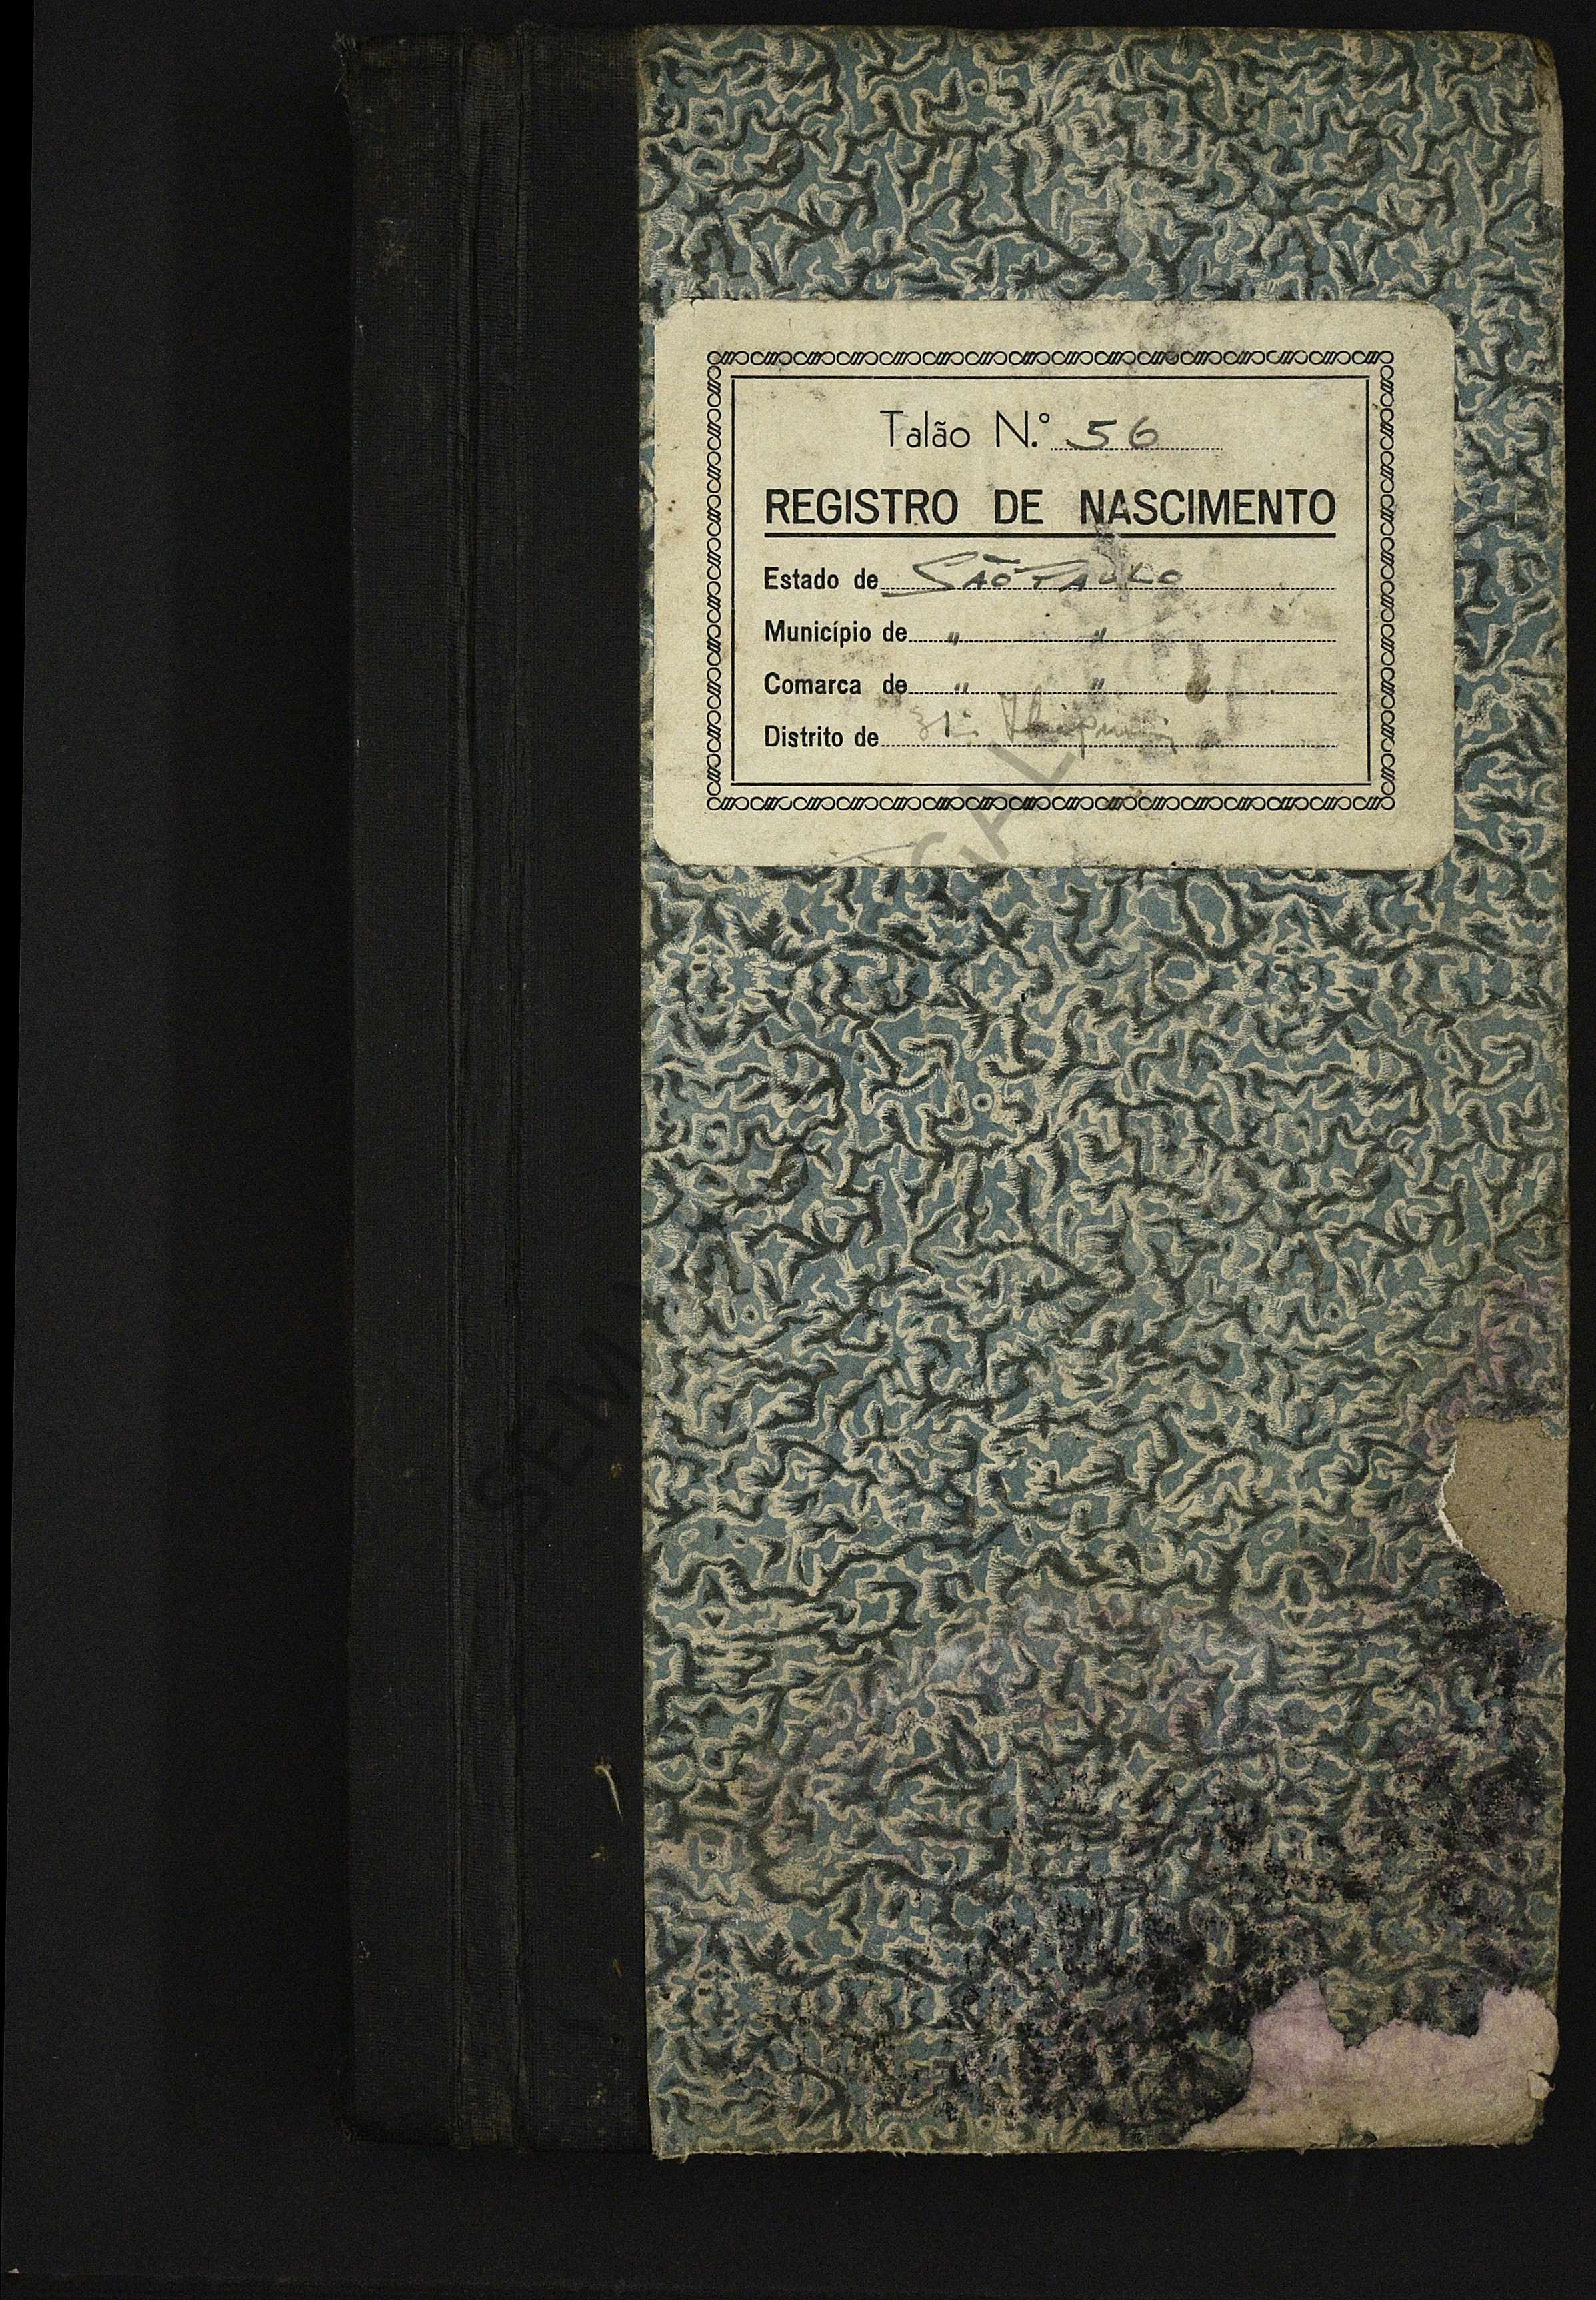 Talão N.º 56
REGISTRO DE NASCIMENTO
Estado de SÃO PAULO
Município de " "
Comarca de " "
Distrito de
SEM
GAL